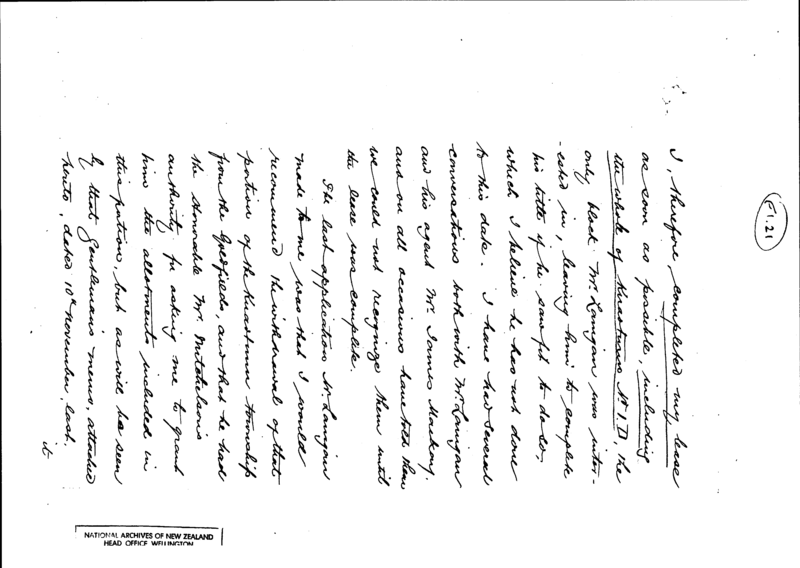 F1.21
I, therefore, completed my lease
as soon as possible, including
the whole of Kuaotunu No 1.D, the
only block Mr. Lanigan was inter-
-ested in, leaving him to complete
his title if he saw fit to do so,
which I believe he has not done
to this date. I have had several
conversations both with Mr. Lanigan
and his agent Mr. James Mackay.
and on all occasions have told them
we could not recognize them until
the lease was complete.
The last application Mr. Lanigan
made to me was that I would
recommend the withdrawal of that
portion of the Kuaotunu township
from the Goldfields, and that he had
the Honorable Mr. Mitchelson's
authority for asking me to grant
him the allotments included in
this portion, but as will be seen
by that Gentleman's memo, attached
hereto, dated 10th November last.
it
NATIONAL ARCHIVES OF NEW ZEALAND
HEAD OFFICE WELLINGTON